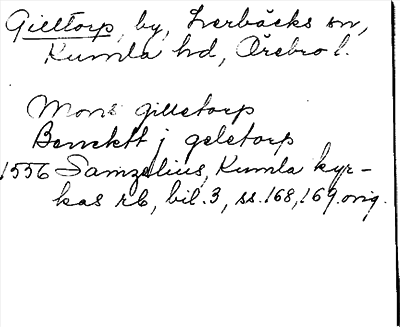 Gilltorp, by, Lerbäcks sn,
Kumla hd, Örebro l.
Mons gilletorp
Benncktt j geletorp
1556 Samzelius, Kumla kyr-
kas rb, bil. 3, ss. 168, 169. orig.